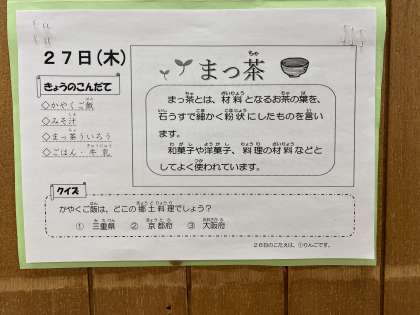 27日(木)
きょうのこんだて
◇かやくご飯
◇みそ汁
◇まっ茶ういろう
◇ごはん・牛乳
まっ茶
まっ茶とは、材料となるお茶の葉を、
石うすで細かく粉状にしたものを言い
ます。
和菓子や洋菓子、料理の材料などと
してよく使われています。
クイズ
かやくご飯は、どこの郷土料理でしょう?
① 三重県 ② 京都府 ③ 大阪府
26日のこたえは、①りんごです。